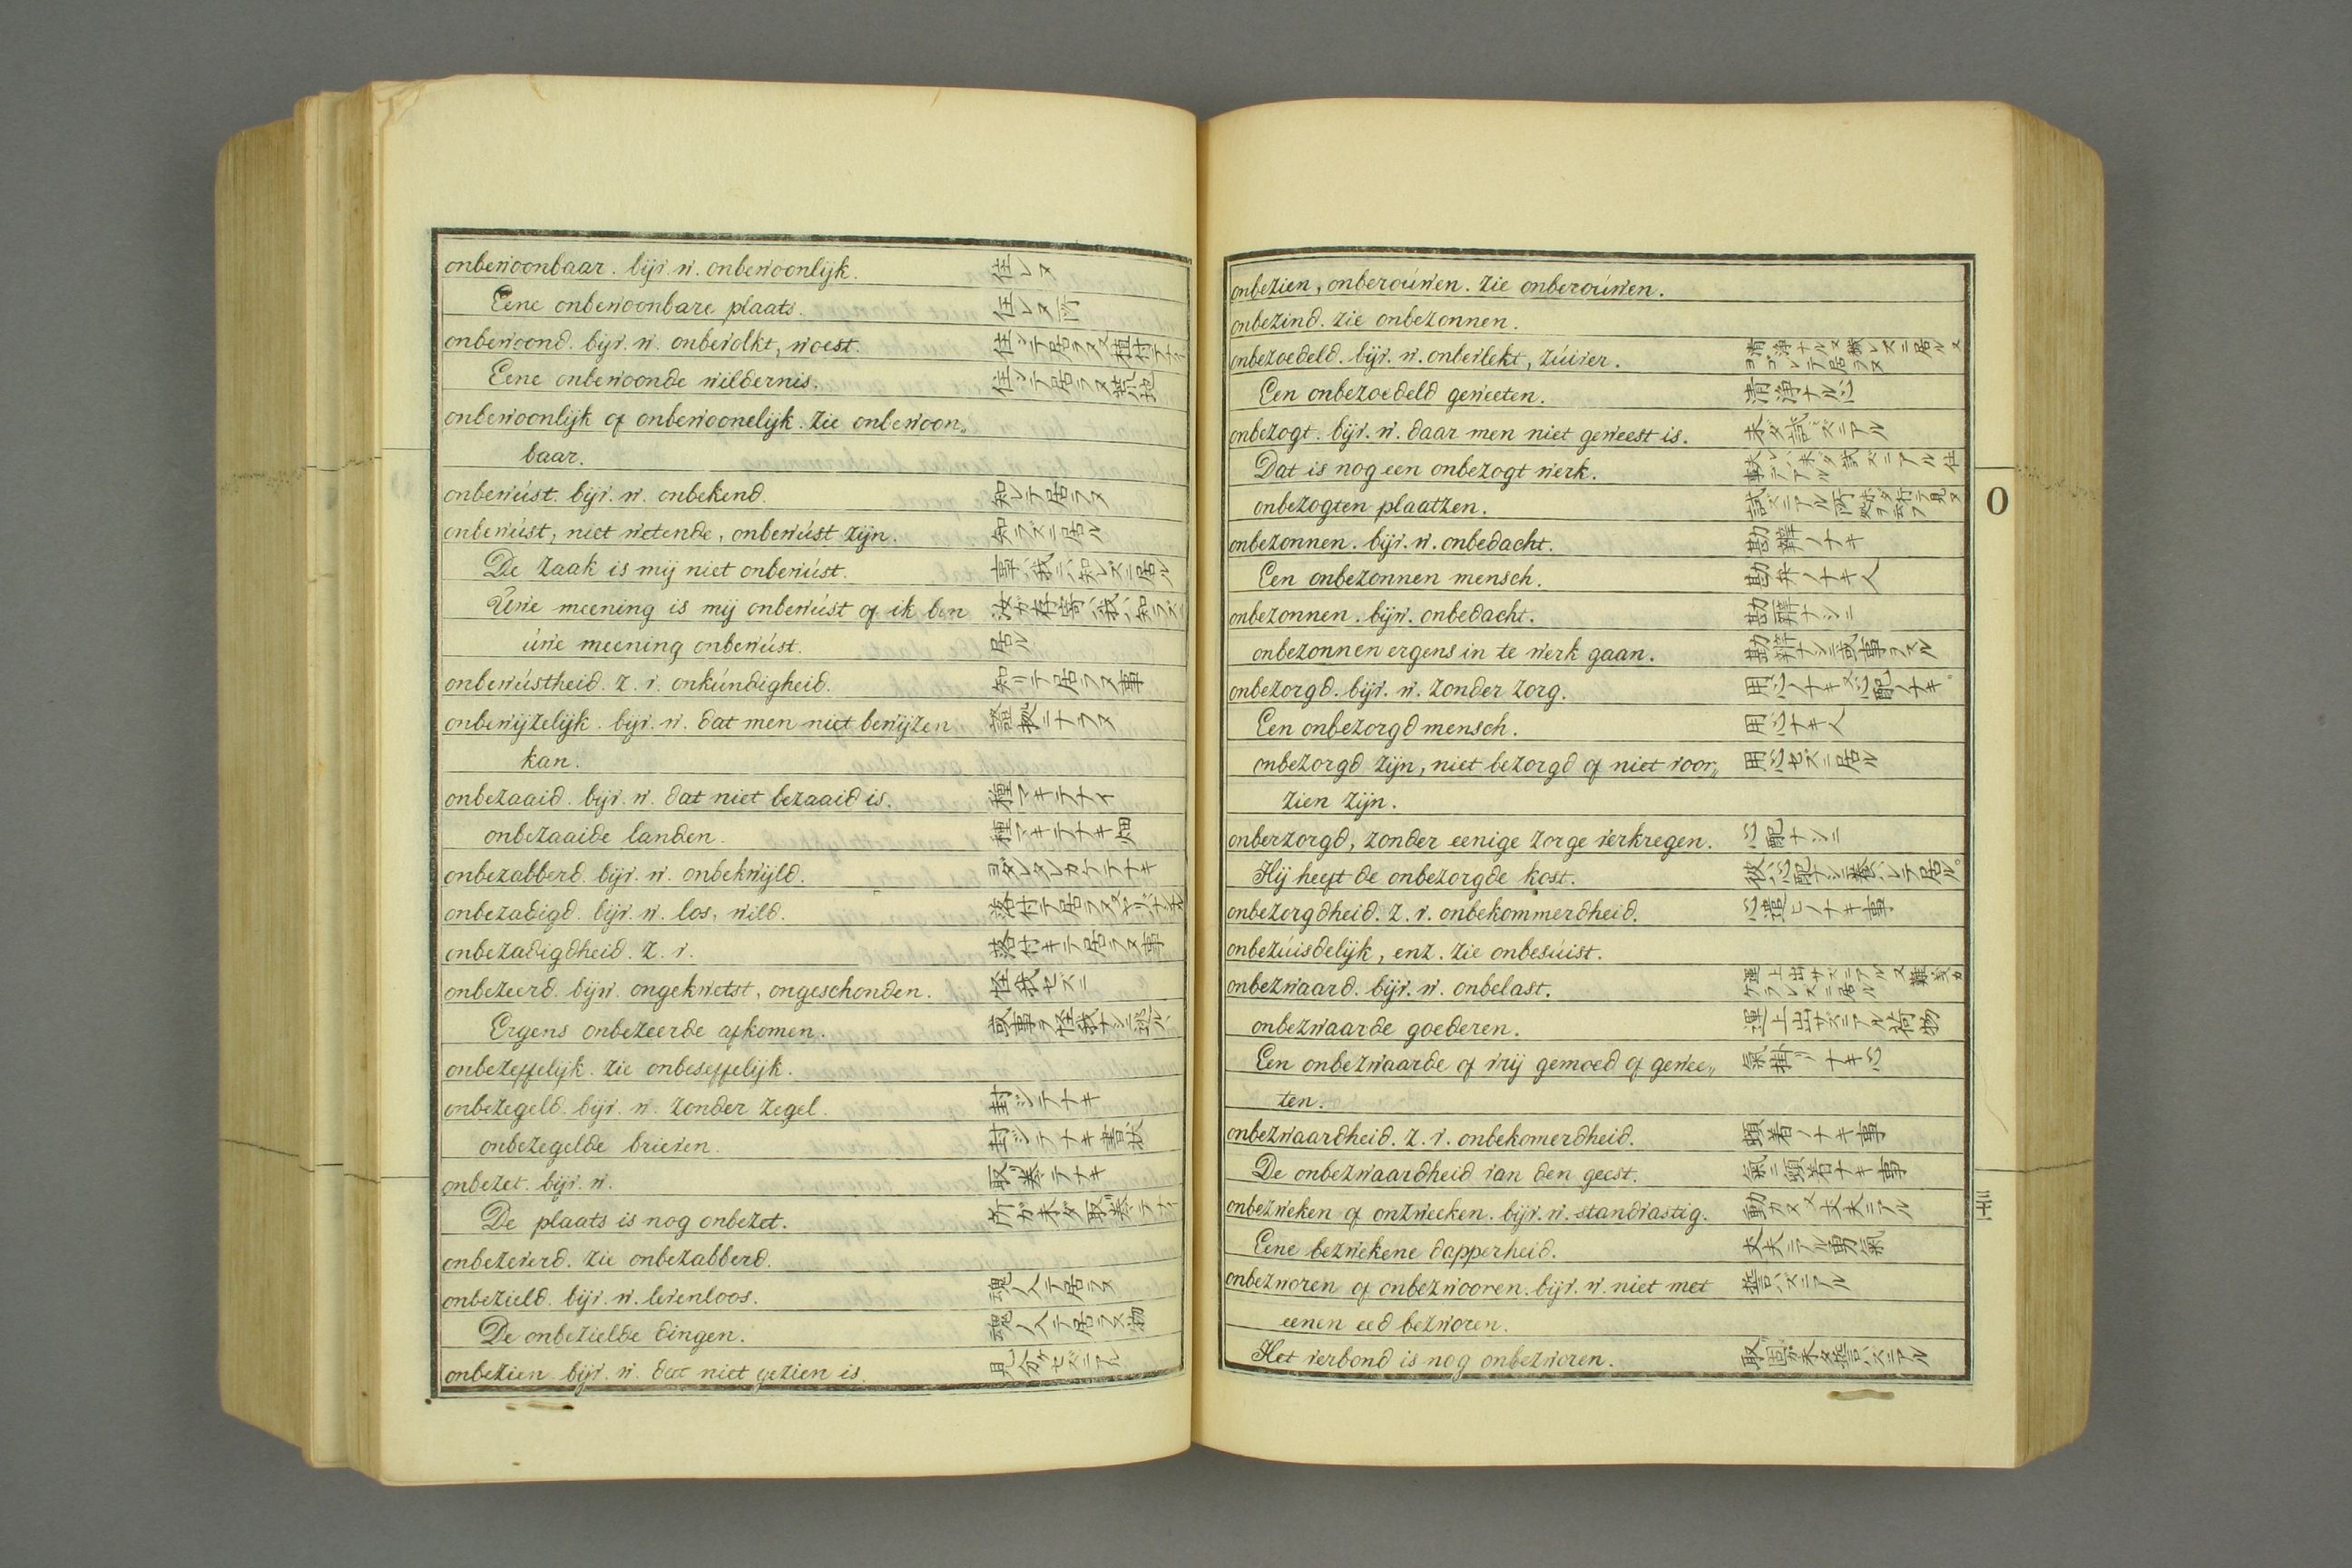 onbewoonbaar. bijv. w. onbewoonlijk. 住レヌ
Eene onbewoonbare plaats. 住レヌ所
onbewoond. bijv. w. onbevolkt, woest. 住ッテ居ラヌ又植付テナイ
Eene onbewoonde wildernis. 住ッテ居ラヌ荒地
onbewoonlijk of onbewoonelijk. zie onbewoon„
baar.
onbewúst. bijv. w. onbekend. 知レテ居ラヌ
onbewúst, niet wetende, onbewúst zijn. 知ラズニ居ル
De zaak is mij niet onbewúst. 事ハ我ニハ知レズニ居ル
Úwe meening is mij onbewúst of ik ben 汝ガ存寄ハ我ハ知ラズニ
úwe meening onbewúst. 居ル
onbewústheid. z. v. onkúndigheid. 知リテ居ラヌ事
onbewijzelijk. bijv. w. dat men niet bewijzen 證拠ニナラヌ
kan.
onbezaaid. bijv. w. dat niet bezaaid is. 種マキテナイ
onbezaaide landen. 種マキテナキ畑
onbezabberd. bijv. w. onbekwijld. ヨダレタレカケテナキ
onbezadigd. bijv. w. los, wild. 落付テ居ラヌ
onbezadigdheid. z. v. 落付キテ居ラヌ事
onbezeerd. bijw. ongekwetst, ongeschonden. 怪我セズニ
Ergens onbezeerde afkomen. 或事ヲ怪我ナシニ逃ル
onbezeffelijk. zie onbeseffelijk.
onbezegeld. bijv. w. zonder zegel. 封ジテナキ
onbezegelde brieven. 封ジテナキ書状
onbezet. bijv. w. 取巻テナキ
De plaats is nog onbezet. 所ガ未ダ取巻テナイ
onbezeverd. zie onbezabberd.
onbezield. bijv. w. levenloos. 魂ノ入テ居ラヌ
De onbezielde dingen. 魂ノ入テ居ラヌ物
onbezien. bijv. w. dat niet gezien is. 見分ケセズニアル
onbezien, onberoúwen. zie onberoúwen.
onbezind. zie onbezonnen.
onbezoedeld. bijv. w. onbevlekt, zúiver. 清浄ナル又穢レズニ居ル又ヨゴレテ居ラヌ
Een onbezoedeld geweeten. 清浄ナル心
onbezogt. bijv. w. daar men niet geweest is. 未ダ試ズニアル
Dat is nog een onbezogt werk. 夫レハ未ダ試ズニアル仕事デアル
onbezogten plaatzen. 試ズニアル所
onbezonnen. bijv. w. onbedacht. 勘辨ノナキ
Een onbezonnen mensch. 勘弁ノナキ人
onbezonnen. bijw. onbedacht. 勘辨ナシニ
onbezonnen ergens in te werk gaan. 勘辨ナシニ或事ヲスル
onbezorgd. bijv. w. zonder zorg. 用心ノナキ又心配ノナキ
Een onbezorgd mensch. 用心ナキ人
onbezorgd zijn, niet bezorgd of niet voor„ 用心セズニ居ル
zien zijn.
onberzorgd, zonder eenige zorge verkregen. 心配ナシニ
Hij heeft de onbezorgde kost. 彼ハ心配ナシニ養ハレテ居ル
onbezorgdheid. z. v. onbekommerdheid. 心遣ヒノナキ事
onbezúisdelijk, enz. zie onbesúist.
onbezwaard. bijv. w. onbelast. 運上出サズニアル又難義カケラレズニ居ル
onbezwaarde goederen. 運上出サズニアル荷物
Een onbezwaarde of vrij gemoed of gewee„ 氣掛リナキ心
ten.
onbezwaardheid. z. v. onbekomerdheid. 頓着ノナキ事
De onbezwaardheid van den geest. 氣ニ頓着ナキ事
onbezweken of onzweeken. bijv. w. standvastig. 動カヌ又丈夫ニアル
Eene bezwekene dapperheid. 丈夫ニアル勇氣
onbezworen of onbezwooren. bijv. w. niet met 誓ハズニアル
eenen eed bezworen.
Het verbond is nog onbezworen. 取固ガ未タ誓ハズニアル
O